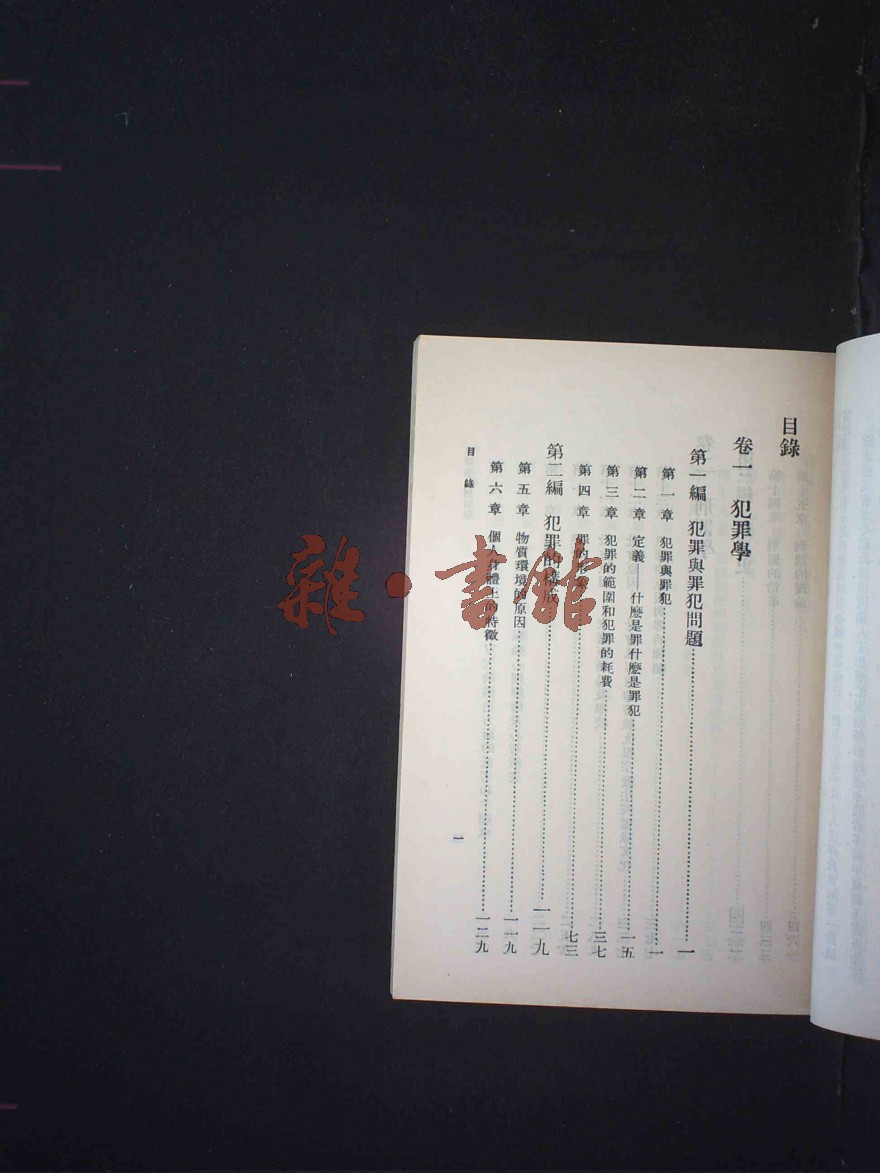 目錄
卷一 犯罪學
第一編 犯罪與罪犯問題……一
第一章 犯罪與罪犯……一
第二章 定義——什麼是罪什麼是罪犯……一五
第三章 犯罪的範圍和犯罪的耗費……三七
第四章 罪的形……七三
第二編 犯罪的構成……一一九
第五章 物質環境的原因……一一九
第六章 個人身體上的特徵……一二九
目錄
一
雜·書館